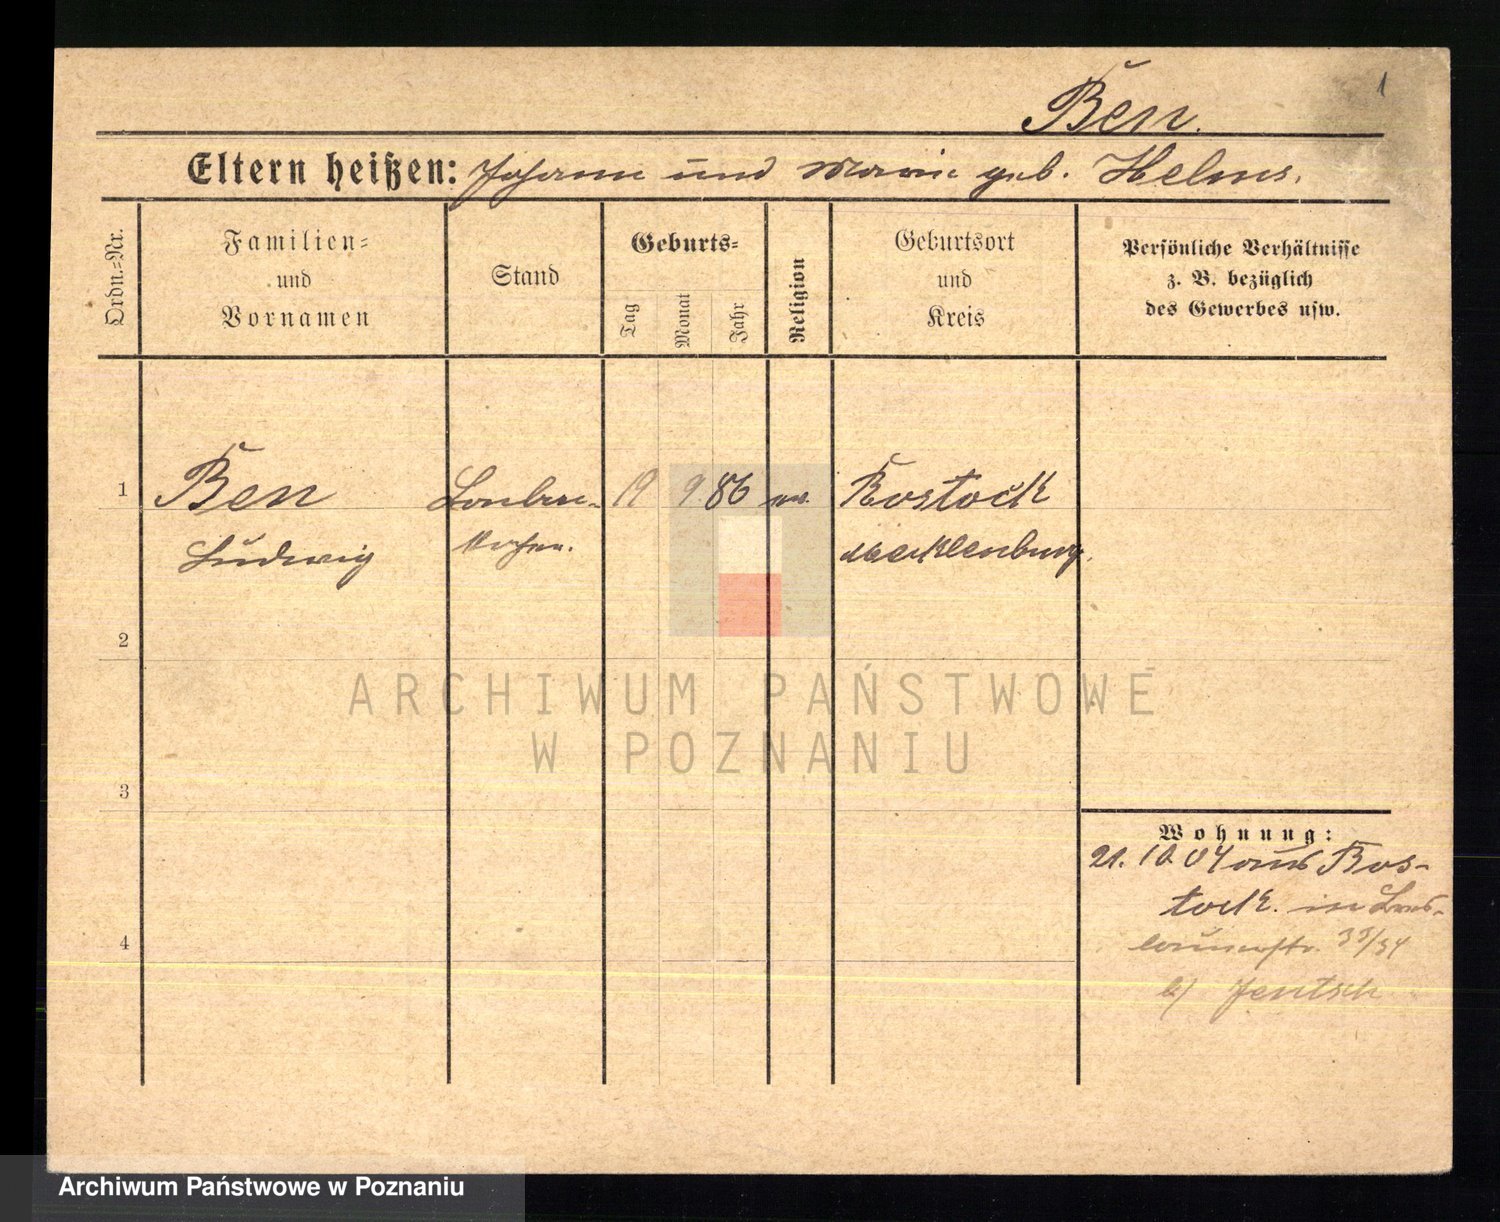 1
Ben.
Eltern heißen: Johann und Marie geb. Helms.
Ordn.=Nr.
Familien=
und
Vornamen
Stand
Geburts=
Tag
Monat
Jahr
Religion
Geburtsort
und
Kreis
Persönliche Verhältnisse
z. B. bezüglich
des Gewerbes usw.
1
Ben
19
9
86
Rostock
Ludwig
Mecklenburg.
2
ARCHIWUM PAŃSTWOWE
W POZNANIU
3
Wohnung:
21. 10 04 aus Ros-
tock. in Bres-
4
lauerstr. 33/34
b/ Jentsch
Archiwum Państwowe w Poznaniu